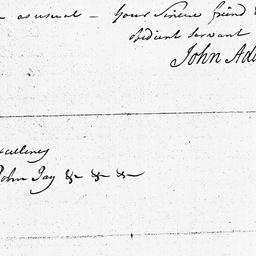 as usual – Your Sincere friend &
obedient servant
John Ada
xcellency
John Jay &c &c &c